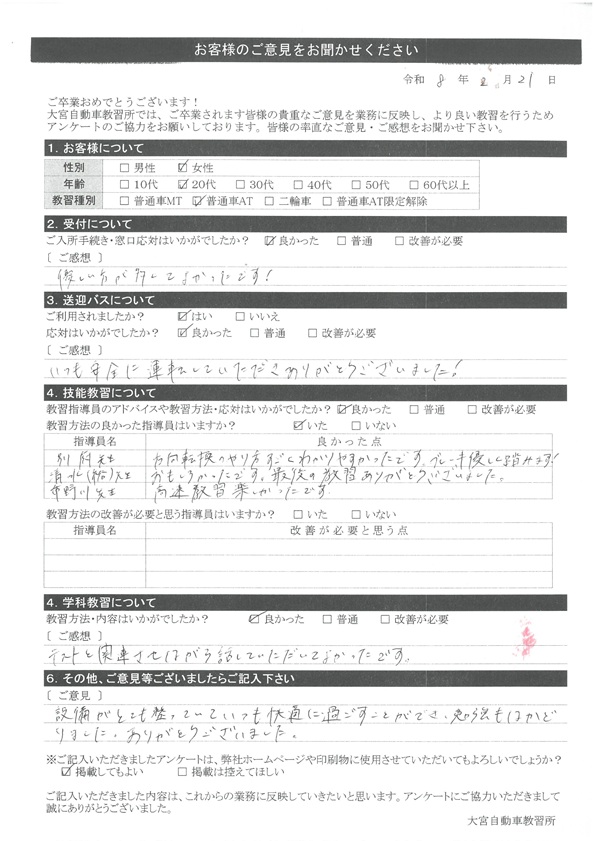 お客様のご意見をお聞かせください
令和 8 年 2 月 21 日
ご卒業おめでとうございます！
大宮自動車教習所では、ご卒業されます皆様の貴重なご意見を業務に反映し、より良い教習を行うため
アンケートのご協力をお願いしております。皆様の率直なご意見・ご感想をお聞かせ下さい。
1. お客様について
性別 □ 男性 ☑ 女性
年齢 □ 10代 ☑ 20代 □ 30代 □ 40代 □ 50代 □ 60代以上
教習種別 □ 普通車MT ☑ 普通車AT □ 二輪車 □ 普通車AT限定解除
2. 受付について
ご入所手続き・窓口応対はいかがでしたか？ ☑ 良かった □ 普通 □ 改善が必要
［ ご感想 ］
優しい方が多くてよかったです！
3. 送迎バスについて
ご利用されましたか？ ☑ はい □ いいえ
応対はいかがでしたか？ ☑ 良かった □ 普通 □ 改善が必要
［ ご感想 ］
いつも安全に運転していただきありがとうございました！
4. 技能教習について
教習指導員のアドバイスや教習方法・応対はいかがでしたか？ ☑ 良かった □ 普通 □ 改善が必要
教習方法の良かった指導員はいますか？ ☑ いた □ いない
指導員名 良かった点
別府先生 方向転換のやり方すごくわかりやすかったです。ブレーキ優しく踏みます！
清水(裕)先生 おもしろかったです。最後の教習ありがとうございました。
市野川先生 高速教習楽しかったです。
教習方法の改善が必要と思う指導員はいますか？ □ いた □ いない
指導員名 改善が必要と思う点
4. 学科教習について
教習方法・内容はいかがでしたか？ ☑ 良かった □ 普通 □ 改善が必要
［ ご感想 ］
テストと関連させながら話していただいてよかったです。
6. その他、ご意見等ございましたらご記入下さい
［ ご意見 ］
設備がとても整っていていつも快適に過ごすことができ、勉強もはかど
りました。ありがとうございました。
※ご記入いただきましたアンケートは、弊社ホームページや印刷物に使用させていただいてもよろしいでしょうか？
☑ 掲載してもよい □ 掲載は控えてほしい
ご記入いただきました内容は、これからの業務に反映していきたいと思います。アンケートにご協力いただきまして
誠にありがとうございました。
大宮自動車教習所